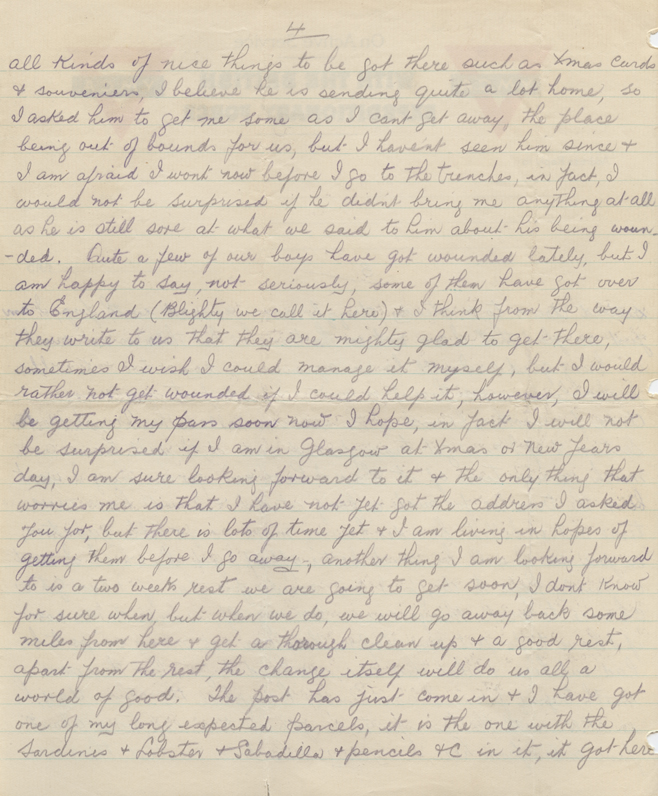 4
all kinds of nice things to be got there such as Xmas cards
& souveniers, I believe he is sending quite a lot home, so
I asked him to get me some as I cant get away, the place
being out of bounds for us, but I havent seen him since &
I am afraid I wont now before I go to the trenches, in fact, I
would not be surprised if he didnt bring me anything at all
as he is still sore at what we said to him about his being woun-
-ded. Quite a few of our boys have got wounded lately, but I
am happy to say, not seriously, some of them have got over
to England (Blighty we call it here) & I think from the way
they write to us that they are mighty glad to get there,
sometimes I wish I could manage it myself, but I would
rather not get wounded if I could help it, however, I will
be getting my pass soon now I hope, in fact I will not
be surprised if I am in Glasgow at Xmas or New Years
day, I am sure looking forward to it & the only thing that
worries me is that I have not yet got the address I asked
you for, but there is lots of time yet & I am living in hopes of
getting them before I go away, another thing I am looking forward
to is a two weeks rest we are going to get soon, I dont know
for sure when, but when we do, we will go away back some
miles from here & get a thorough clean up & a good rest,
apart from the rest, the change itself will do us all a
world of good. The post has just come in & I have got
one of my long expected parcels, it is the one with the
Sardines & Lobster & Sabadilla & pencils &C in it, it got here